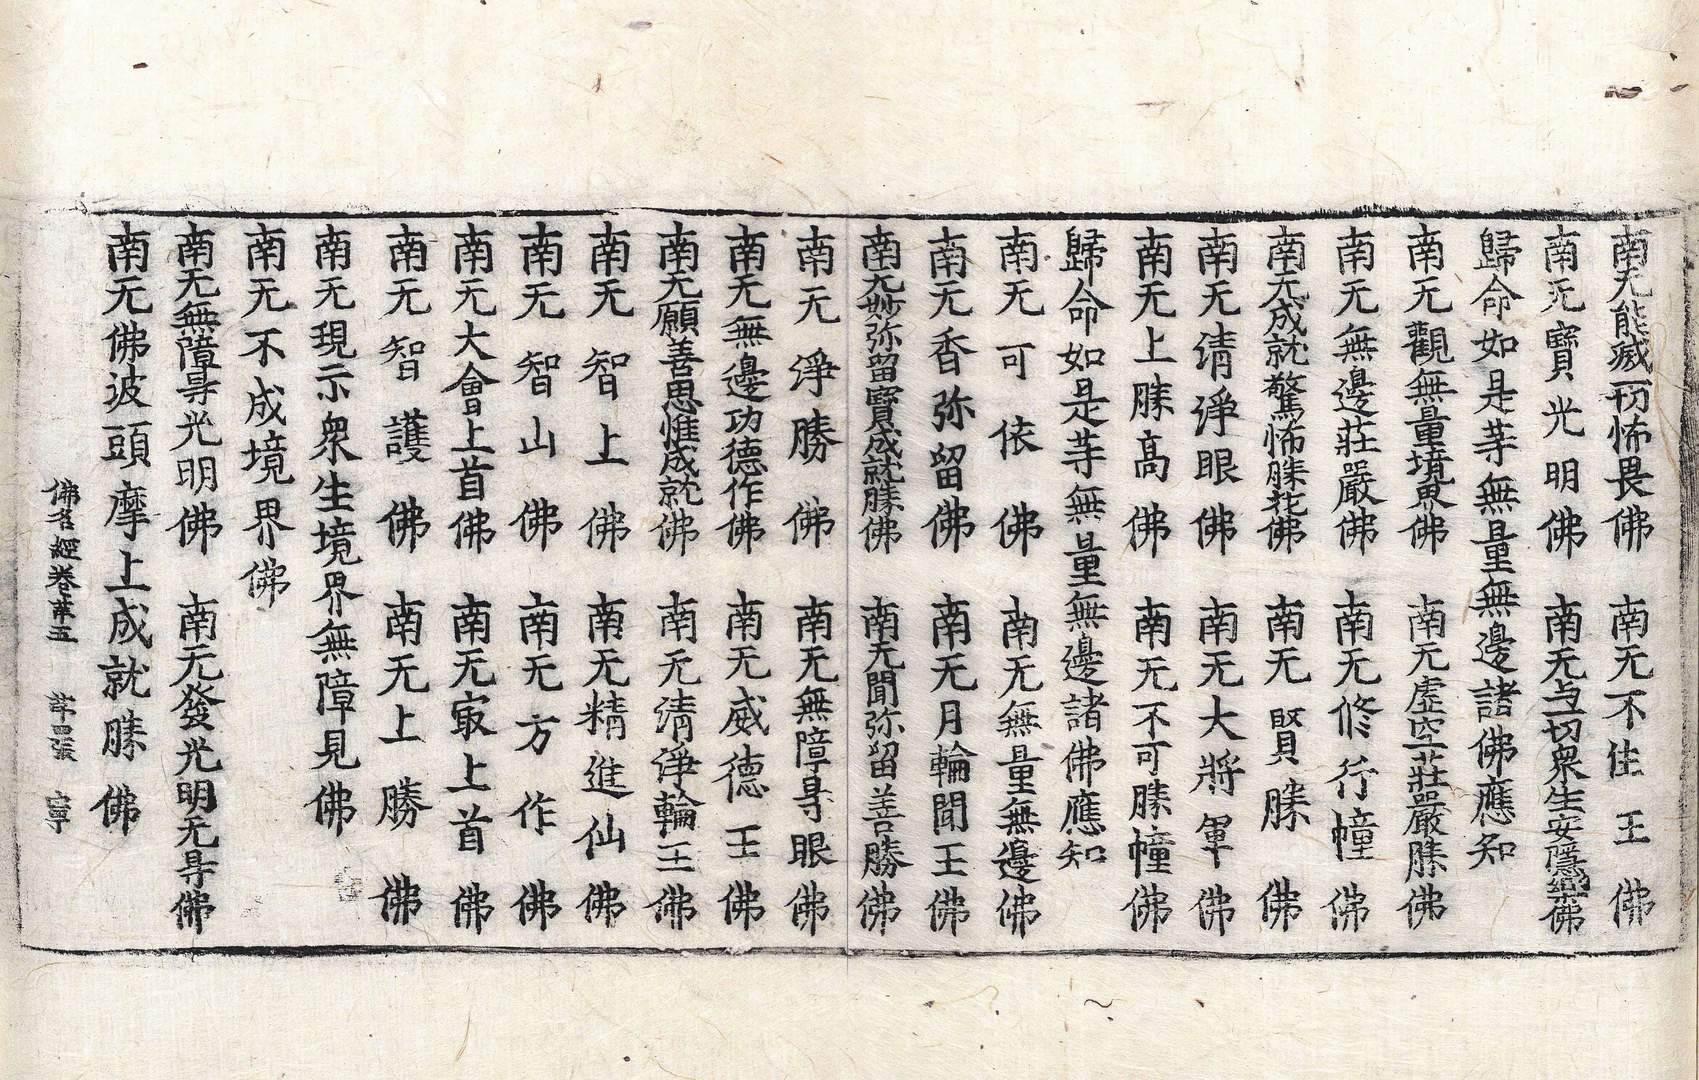 南无能滅一切怖畏佛　南无不住王佛
南无寶光明佛　南无与一切衆生安隱樂佛
歸命如是等無量無邊諸佛應知
南无觀無量境界佛　南无虛空莊嚴勝佛
南无無邊莊嚴佛　南无修行幢佛
南无成就驚怖勝花佛　南无賢勝佛
南无清淨眼佛　南无大將軍佛
南无上勝高佛　南无不可勝幢佛
歸命如是等無量無邊諸佛應知
南无可依佛　南无無量無邊佛
南无香弥留佛　南无月輪聞王佛
南无妙弥留寶成就勝佛　南无聞弥留善勝佛
南无淨勝佛　南无無障㝵眼佛
南无無邊功德作佛　南无威德王佛
南无願善思惟成就佛　南无清淨輪王佛
南无智上佛　南无精進仙佛
南无智山佛　南无方作佛
南无大會上首佛　南无㝡上首佛
南无智護佛　南无上勝佛
南无現示衆生境界無障見佛
南无不成境界佛
南无無障㝵光明佛　南无發光明无㝵佛
南无佛波頭摩上成就勝佛
佛名經卷苐五　苐四張　寧